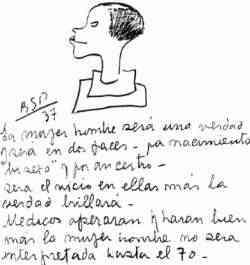 BSP
37
La mujer hombre será una verdad
y sera en dos faces - por nacimiento
y por ancestro -
sera el vicio en ellas mas la
verdad brillará -
Medicos operaran y haran bien
mas la mujer hombre no sera
interpretada hasta el 70 -